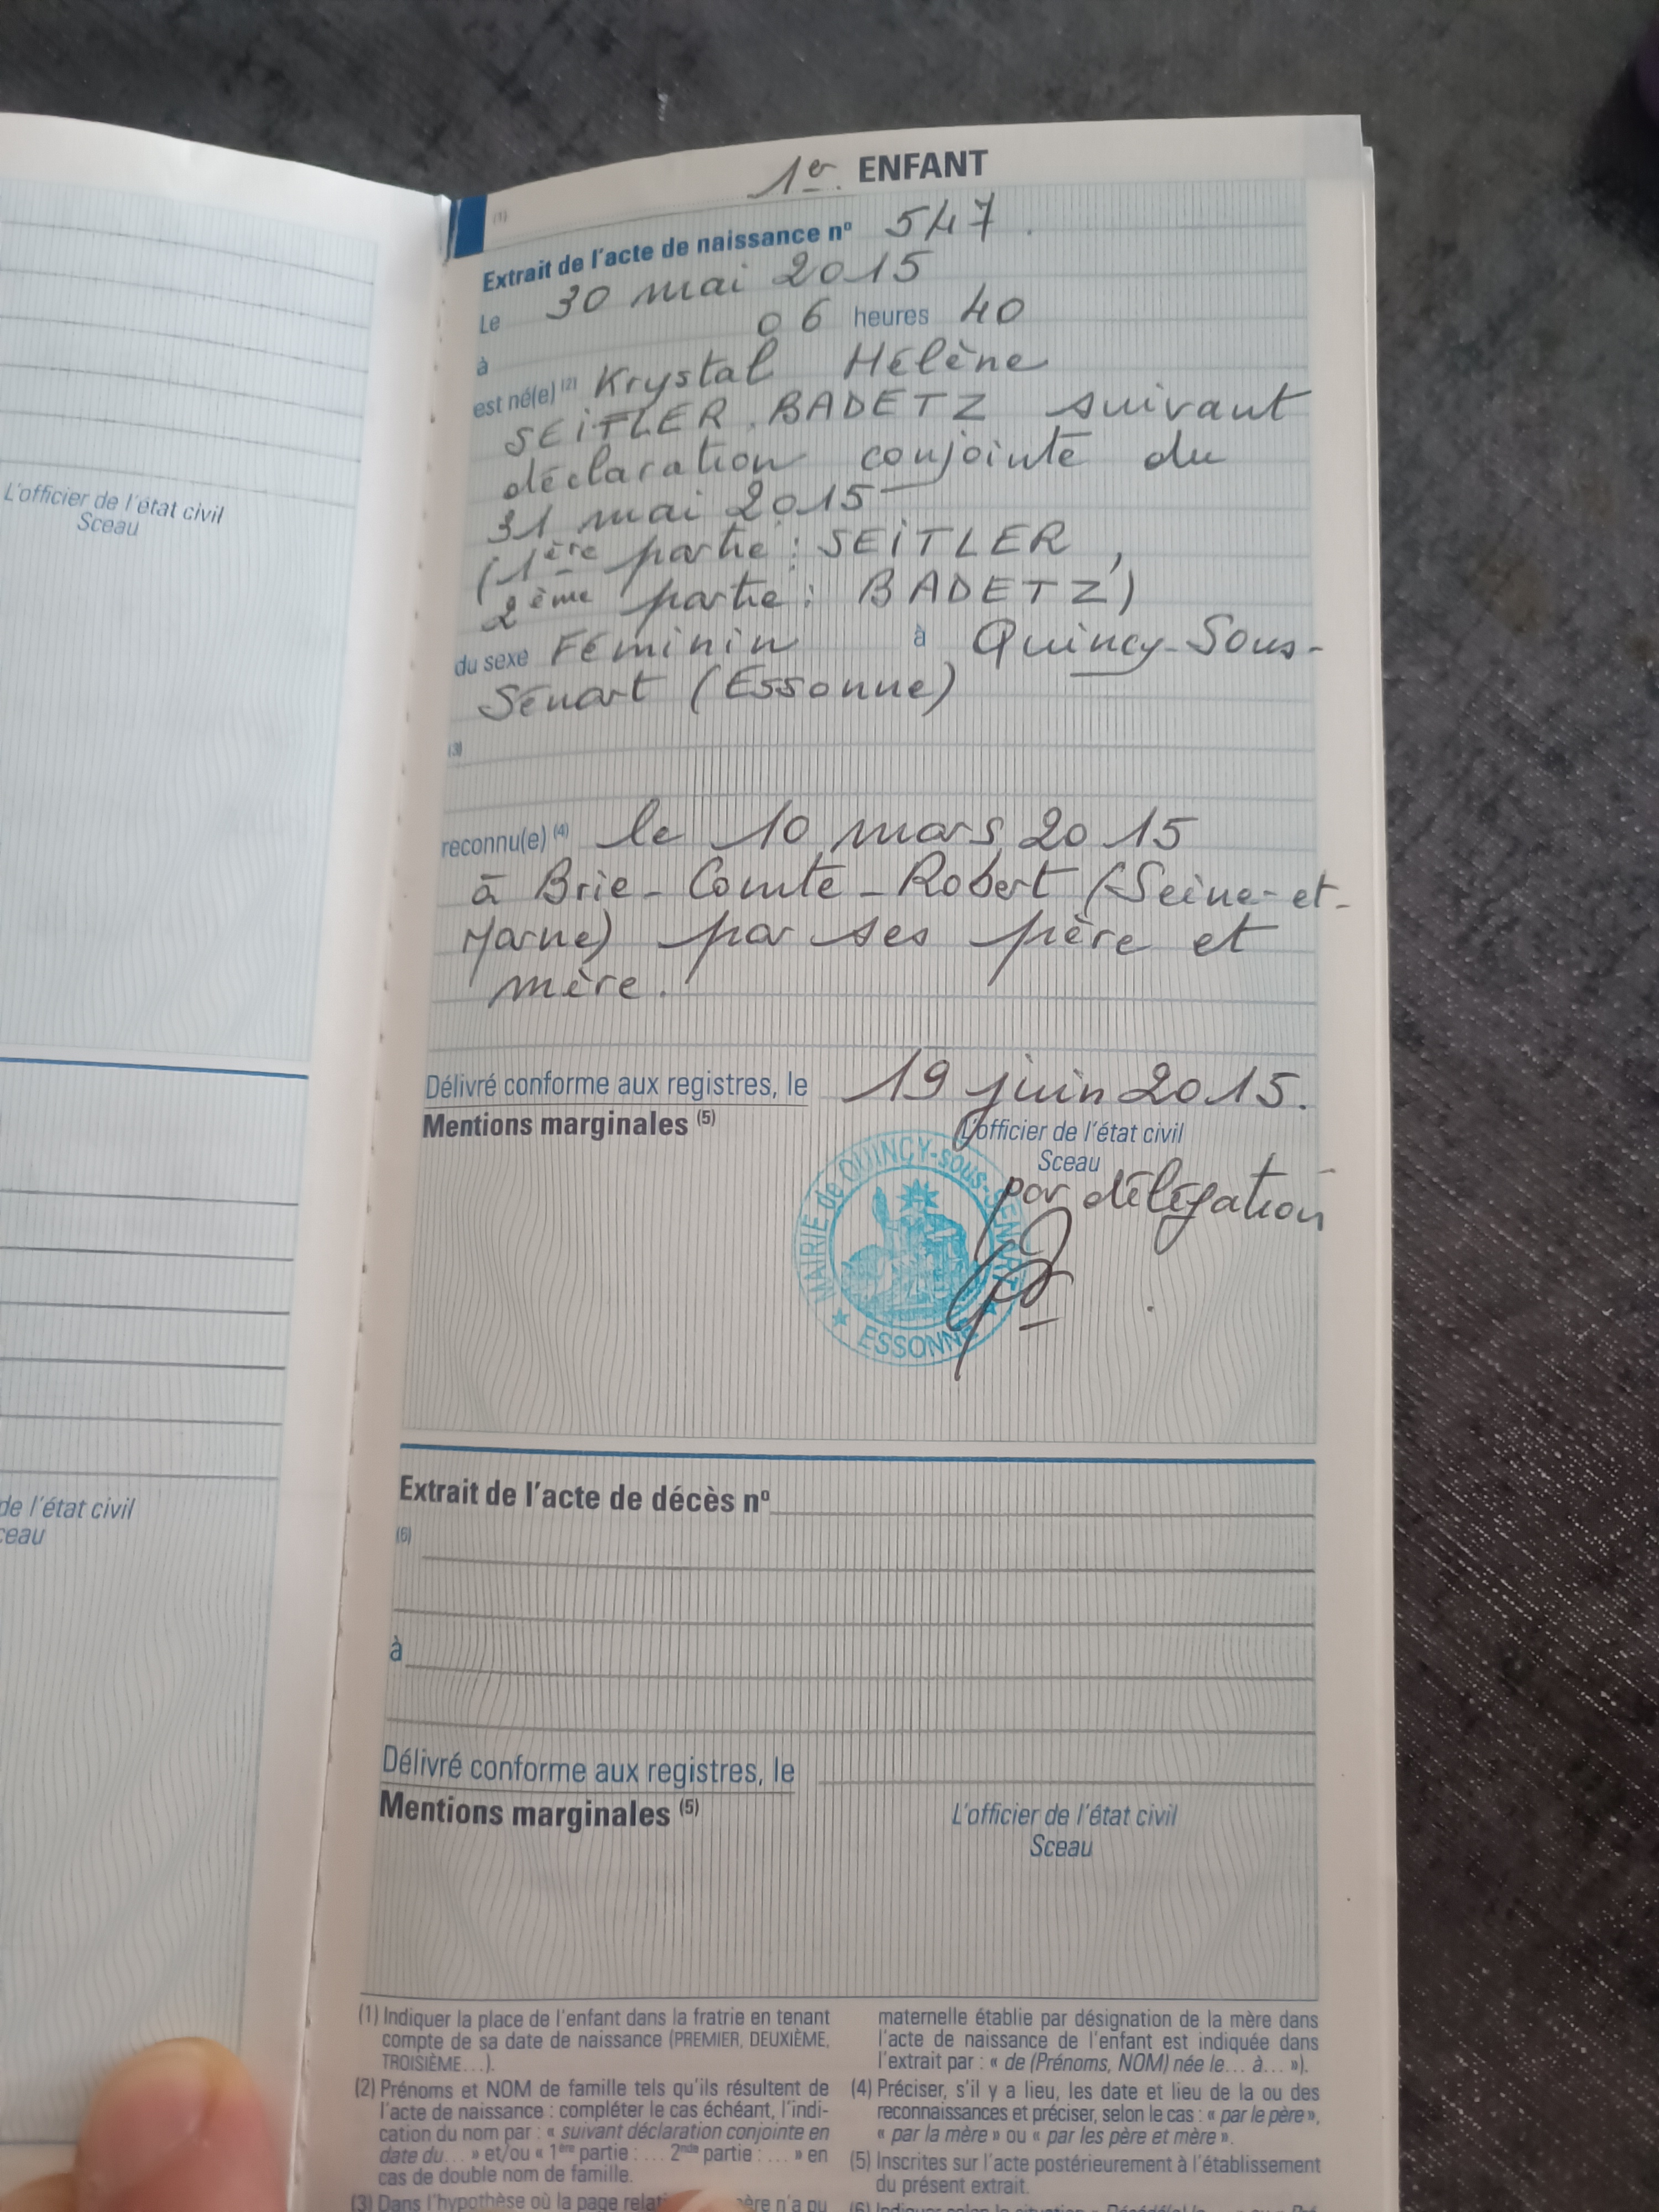 L'officier de l'état civil
Sceau
de l'état civil
ceau
1er ENFANT
(1)
Extrait de l'acte de naissance nº 547.
Le 30 mai 2015
à 06 heures 40
est né(e) (2) Krystal Hélène
SEITLER BADETZ suivant
déclaration conjointe du
31 mai 2015
(1ère partie : SEITLER,
2ème partie : BADETZ)
du sexe Féminin à Quincy-Sous-
Sénart (Essonne)
(3)
reconnu(e) (4) le 10 mars 2015
à Brie-Comte-Robert (Seine-et-
Marne) par ses père et
mère.
Délivré conforme aux registres, le 19 juin 2015.
Mentions marginales (5)
L'officier de l'état civil
Sceau
par délégation
MAIRIE de QUINCY-sous-SÉNART
ESSONNE
Extrait de l'acte de décès nº
(6)
à
Délivré conforme aux registres, le
Mentions marginales (5)
L'officier de l'état civil
Sceau
(1) Indiquer la place de l'enfant dans la fratrie en tenant
compte de sa date de naissance (PREMIER, DEUXIÈME,
TROISIÈME...).
(2) Prénoms et NOM de famille tels qu'ils résultent de
l'acte de naissance : compléter le cas échéant, l'indi-
cation du nom par : « suivant déclaration conjointe en
date du... » et/ou « 1ère partie : .... 2nde partie : ... » en
cas de double nom de famille.
(3) Dans l'hypothèse où la page relati ère n'a pu
maternelle établie par désignation de la mère dans
l'acte de naissance de l'enfant est indiquée dans
l'extrait par : « de (Prénoms, NOM) née le... à... »).
(4) Préciser, s'il y a lieu, les date et lieu de la ou des
reconnaissances et préciser, selon le cas : « par le père »,
« par la mère » ou « par les père et mère ».
(5) Inscrites sur l'acte postérieurement à l'établissement
du présent extrait.